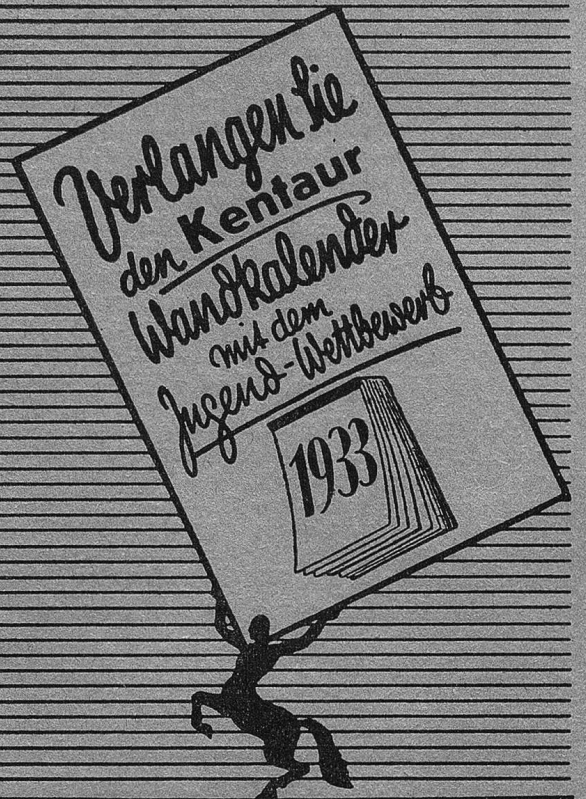 Verlangen Sie
den Kentaur
Wandkalender
mit dem
Jugend-Wettbewerb
1933